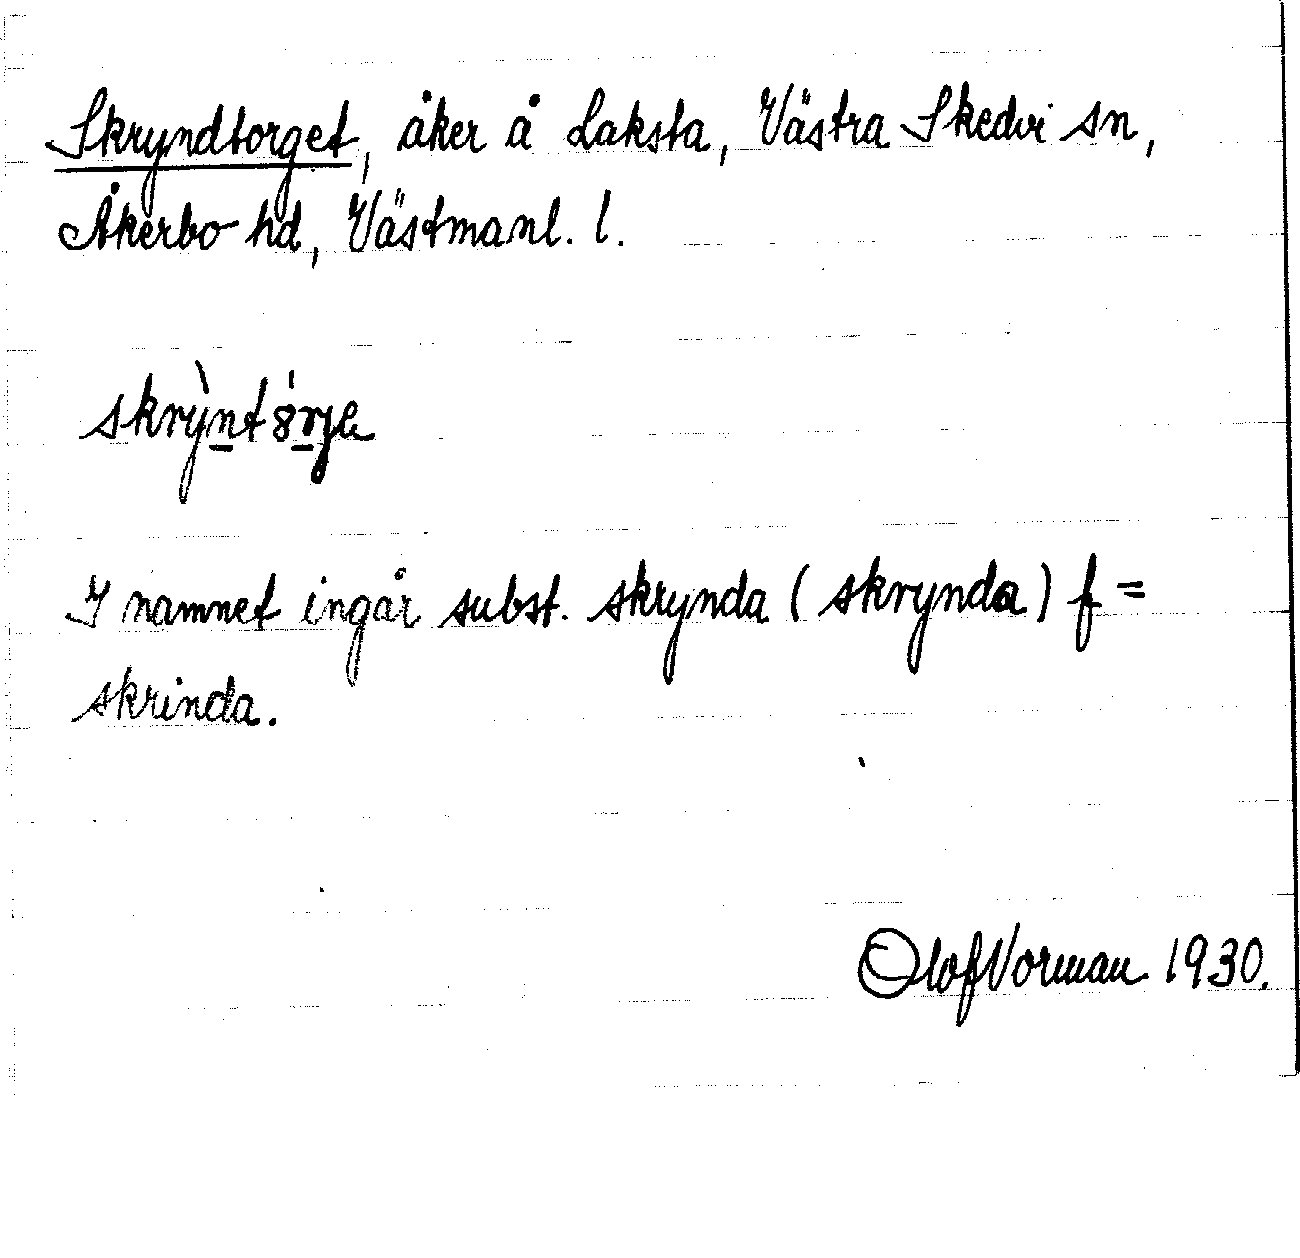 Skryndtorget, åker å Laksta, Västra Skedvi sn,
Åkerbo hd, Västmanl. l.
skrỳ̠ntórje
I namnet ingår subst. skrynda (skrynda) f =
skrinda.
Olof Norman 1930.